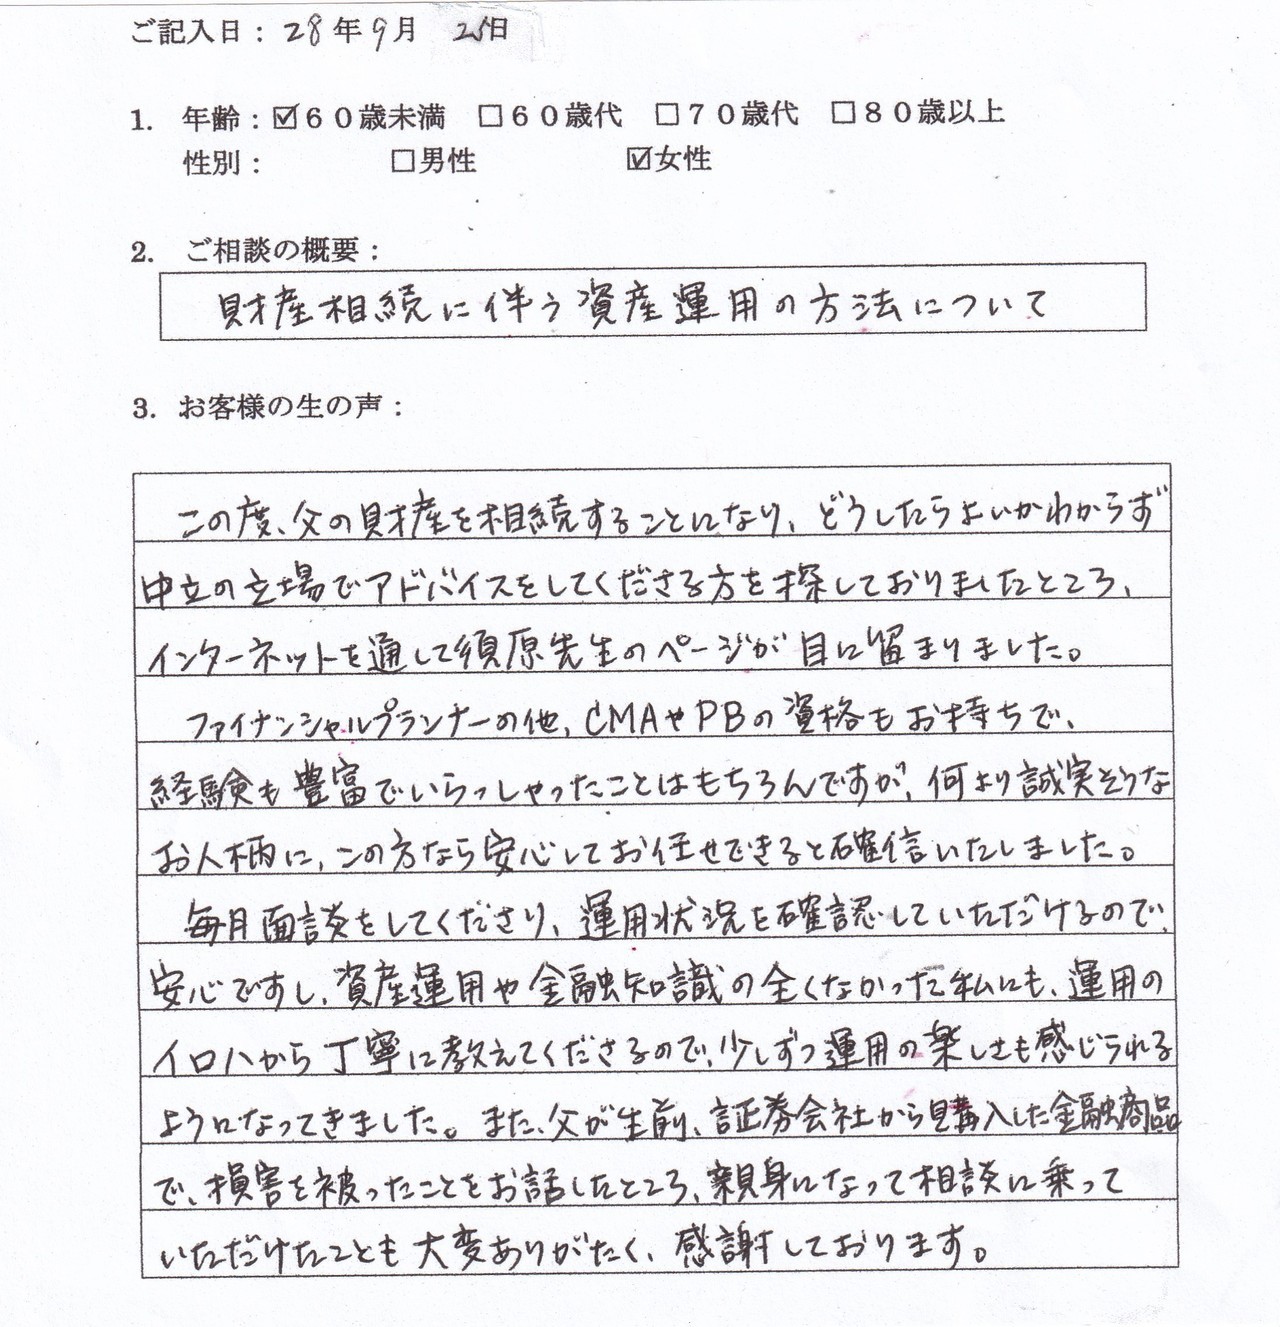 ご記入日：28年9月 25日
1. 年齢：☑６０歳未満 □６０歳代 □７０歳代 □８０歳以上
性別： □男性 ☑女性
2. ご相談の概要：
財産相続に伴う資産運用の方法について
3. お客様の生の声：
この度、父の財産を相続することになり、どうしたらよいかわからず
中立の立場でアドバイスをしてくださる方を探しておりましたところ、
インターネットを通して須原先生のページが目に留まりました。
ファイナンシャルプランナーの他、CMAやPBの資格もお持ちで、
経験も豊富でいらっしゃったことはもちろんですが、何より誠実そうな
お人柄に、この方なら安心してお任せできると確信いたしました。
毎月面談をしてくださり、運用状況を確認していただけるので、
安心ですし、資産運用や金融知識の全くなかった私にも、運用の
イロハから丁寧に教えてくださるので、少しずつ運用の楽しさも感じられる
ようになってきました。また、父が生前、証券会社から購入した金融商品
で、損害を被ったことをお話したところ、親身になって相談に乗って
いただけたことも大変ありがたく、感謝しております。